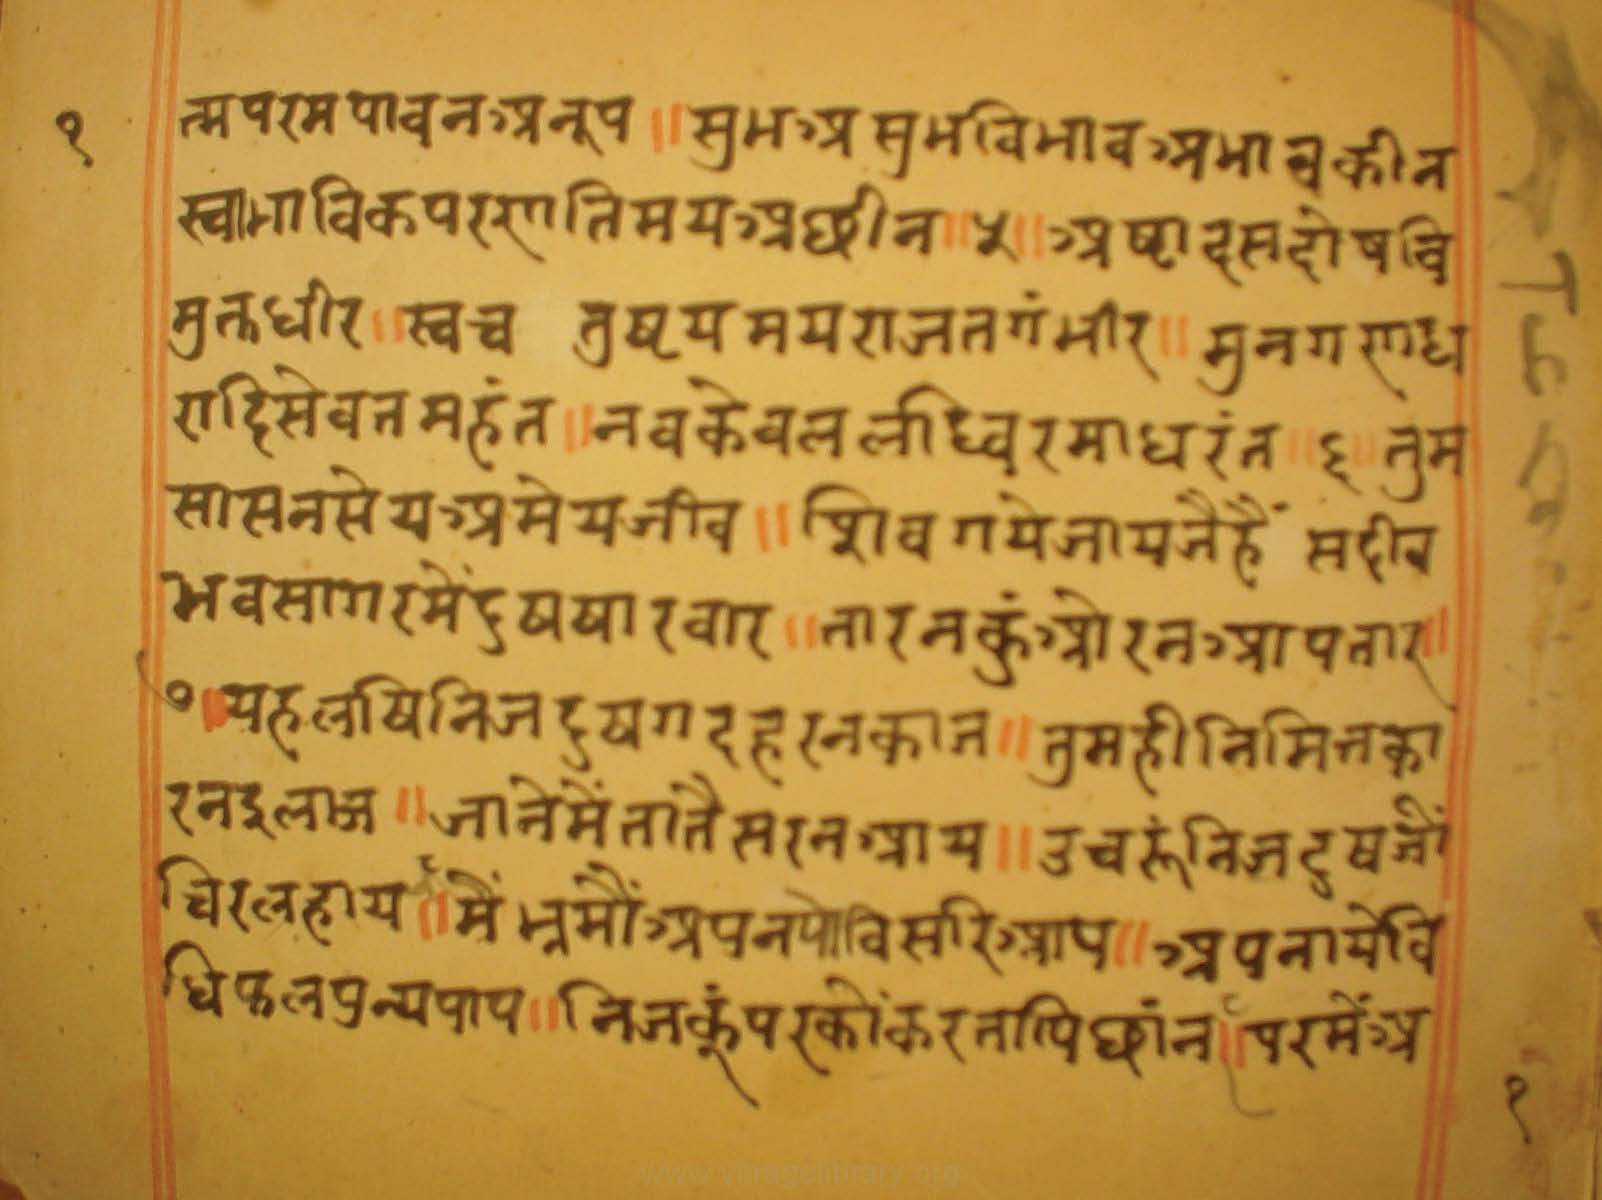 १
त्मपरमपावनअनूप ॥ सुभअसुभविभावअभावकीन
स्वाभाविकपरणतिमयअछीन ॥ ५ ॥ अष्टादसदोषवि
मुक्तधीर ॥ स्वच तुष्टयमयराजतगंभीर ॥ मुनगणध
रादिसेवतमहंत ॥ नवकेवललब्धिरमाधरंत ॥ ६ ॥ तुम
सासनसेयअमेयजीव ॥ शिवगयेजायजैहैं सदीव
भवसागरमेंदुषषारवार ॥ तारनकुंओरनआपतार ॥
७ ॥ यहलषिनिजदुषगदहरनकाज ॥ तुमहीनिमित्तका
रनइलाज ॥ जानेमैंतातैसरनआय ॥ उचरूंनिजदुषजौं
चिरलहाय ॥ ८ मैंभ्रमौंअपनपोविसरिआप ॥ अपनायेवि
धिफलपुन्यपाप ॥ निजकूंपरकोंकरतापिछांन ॥ परमेंअ
१
www.vitragelibrary.org